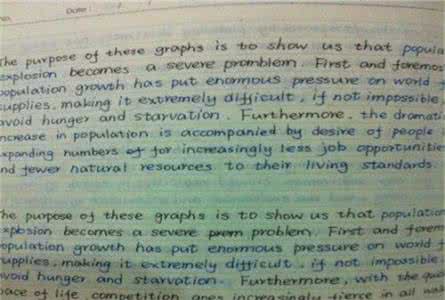 Date:
The purpose of these graphs is to show us that popula
explosion becomes a severe promblem. First and foremos
population growth has put enormous pressure on world f
supplies, making it extremely difficult, if not impossible
avoid hunger and starvation. Furthermore, the dramati
increase in population is accompanied by desire of people
expanding numbers of for increasingly less job opportunitie
and fewer natural resources to their living standards.
The purpose of these graphs is to show us that population
explosion becomes a severe prom problem. First and forem
opulation growth has put enormous pressure on world f
supplies, making it extremely difficult, if not impossible
avoid hunger and starvation. Furthermore, with the
pace of life competition goes increasingly fierce in all